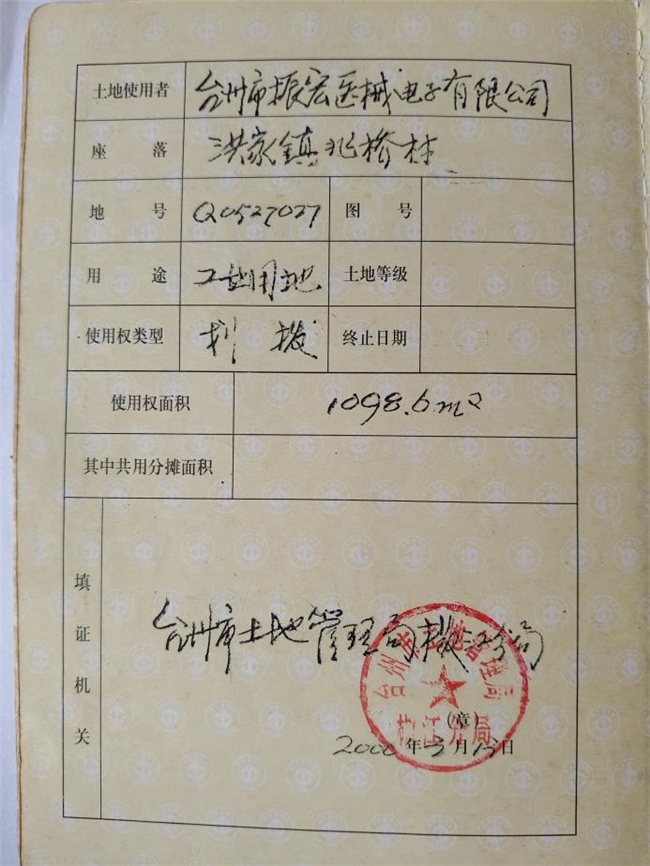 土地使用者 台州市振宏医械电子有限公司
座落 洪家镇兆桥村
地号 Q0527027 图号
用途 工业用地 土地等级
使用权类型 划拨 终止日期
使用权面积 1098.6m²
其中共用分摊面积
填证机关
台州市土地管理局椒江分局
台州市土地管理局
椒江分局
(章)
2000年3月13日